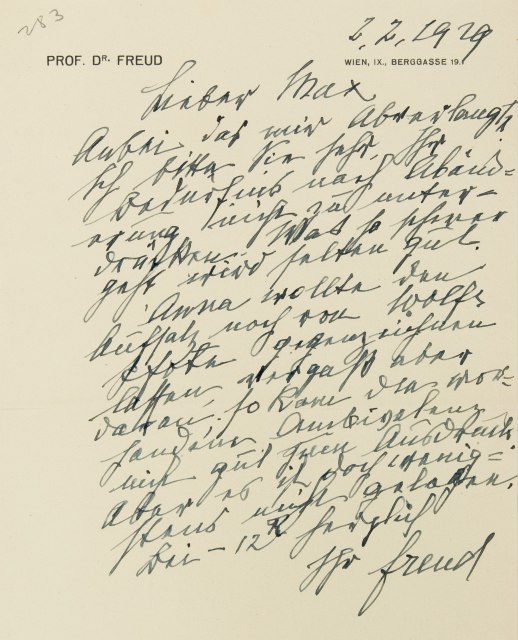 283
2. 2. 1929
PROF. DR. FREUD
WIEN, IX., BERGGASSE 19.
Lieber Max
Anbei das mir Abverlangte
Ich bitte Sie sehr, Ihr
Bedürfnis nach Abänd=
erung nicht zu unter-
drücken. Was so schwer
geht wird selten gut.
Anna wollte den
Aufsatz noch von Wolfs
gegenzeichnen
lassen, vergaß aber
daran, so kam die vor-
handene Ambivalenz
nicht gut zum Ausdruck
Aber es ist doch wenig=
stens nicht gelogen.
herzlich
Ihr Freud